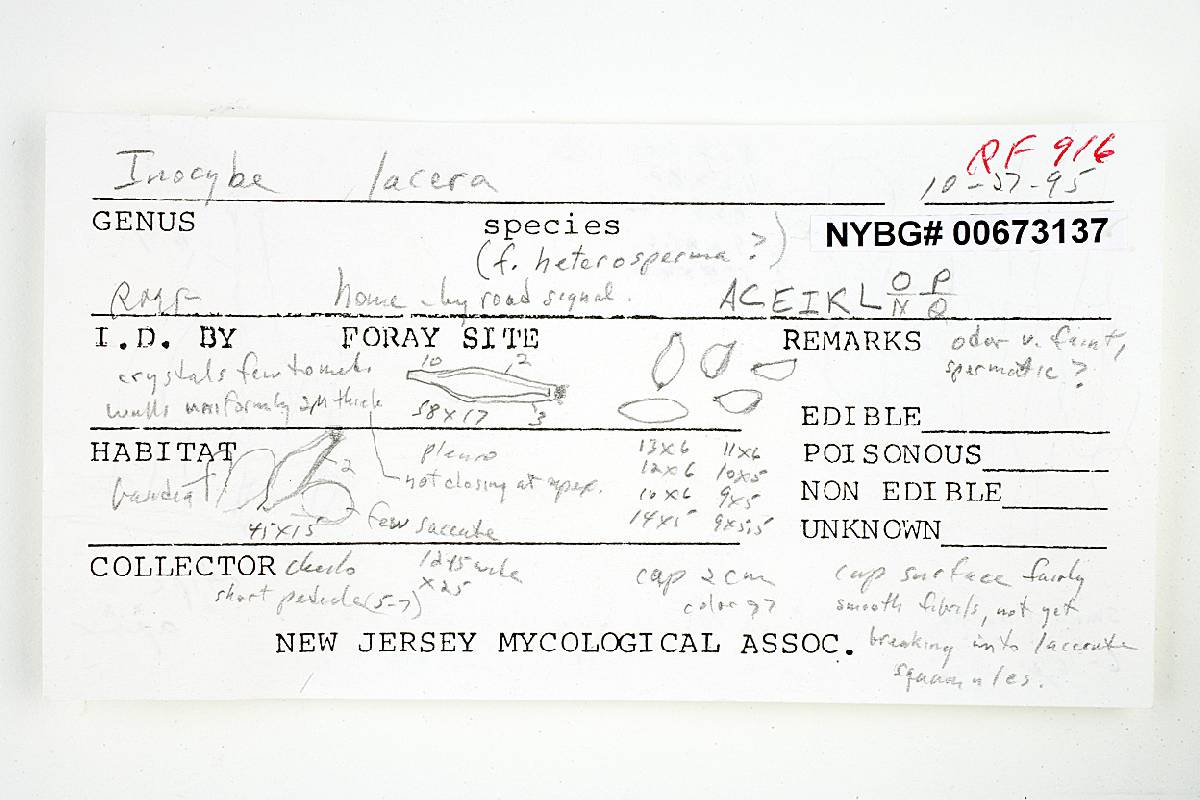 RF 916
Inocybe lacera 10-27-95
GENUS species NYBG# 00673137
(f. heterosperma?)
RMF home - by road signal. ACEIKL O P
N Q
I.D. BY FORAY SITE REMARKS odor v. faint,
spermatic?
crystals few 10 2
walls uniformly 2µ thick 58x17 3
EDIBLE
HABITAT pleuro 13x6 11x6 POISONOUS
2 not closing at apex. 12x6 10x5
10x6 9x5 NON EDIBLE
45x15 few saccate 14x5 9x5.5 UNKNOWN
COLLECTOR cheilo 12-15 wide cap 2 cm cap surface fairly
short pedicle (5-7) x25 color ?? smooth fibrils, not yet
NEW JERSEY MYCOLOGICAL ASSOC. breaking into lacerate
squamules.